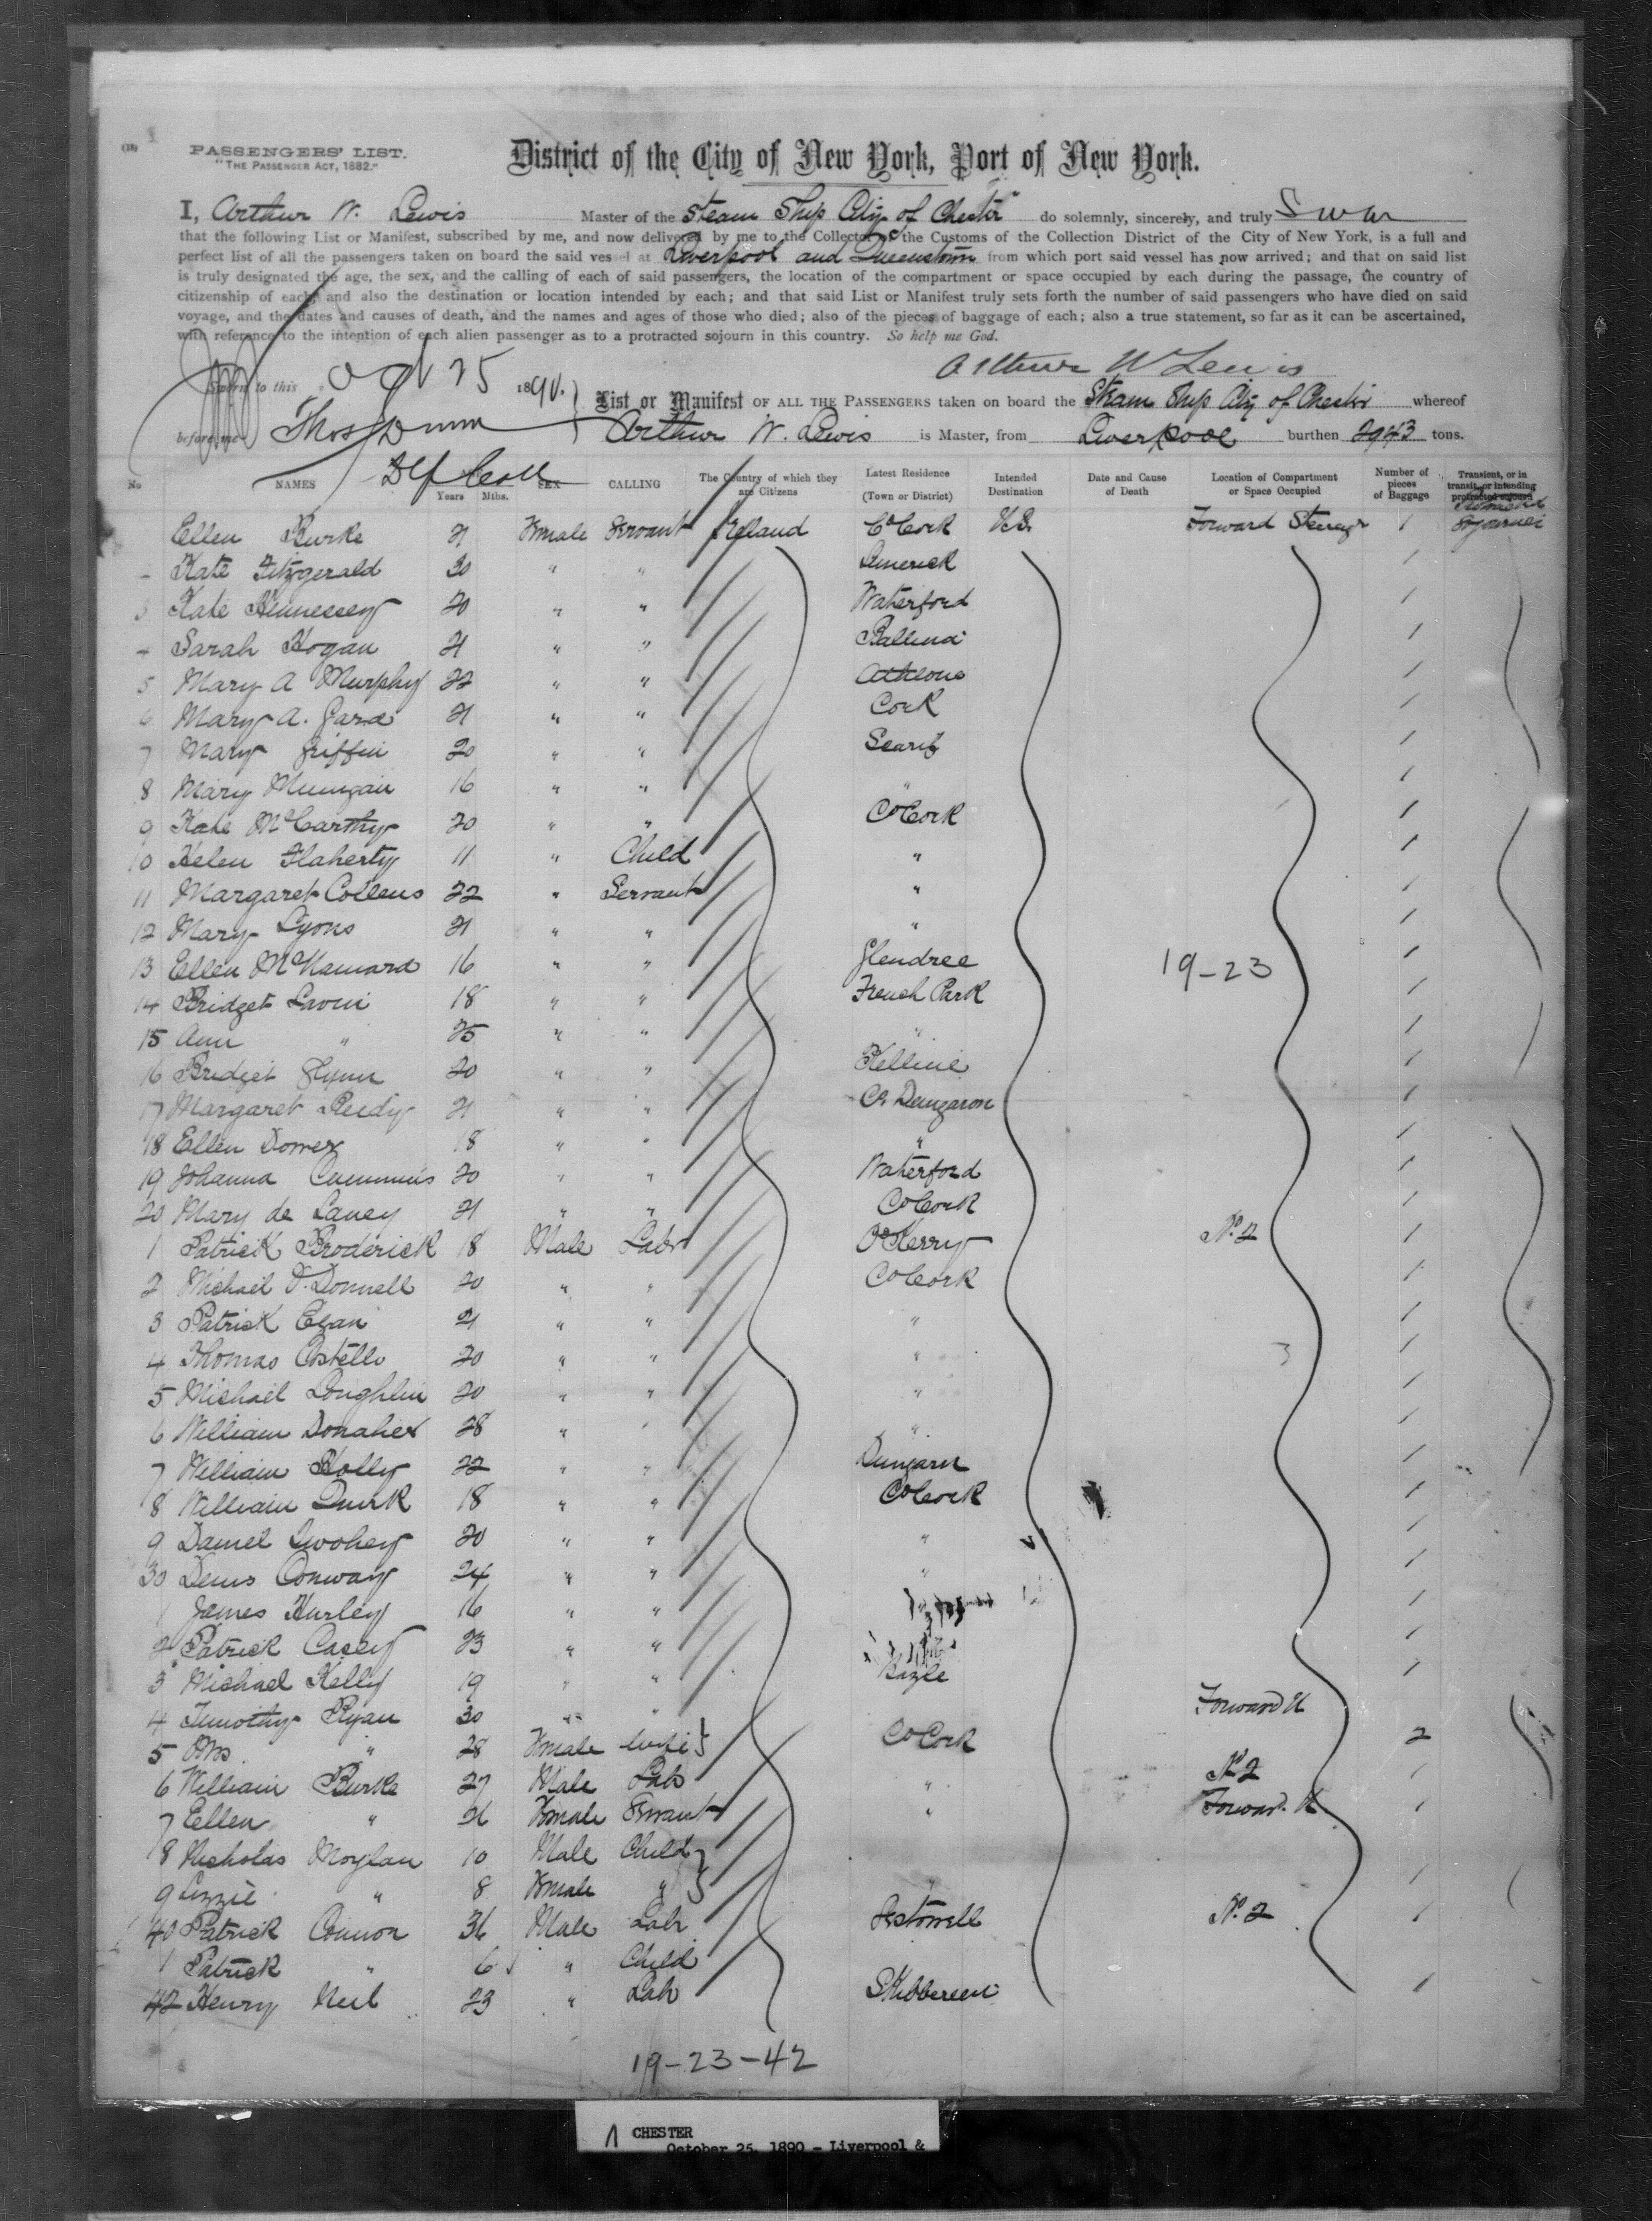 (13)
PASSENGERS' LIST.
"THE PASSENGER ACT, 1882."
District of the City of New York, Port of New York.
I, Arthur W. Lewis Master of the Steam Ship City of Chester do solemnly, sincerely, and truly Swear
that the following List or Manifest, subscribed by me, and now delivered by me to the Collector of the Customs of the Collection District of the City of New York, is a full and
perfect list of all the passengers taken on board the said vessel at Liverpool and Queenstown from which port said vessel has now arrived; and that on said list
is truly designated the age, the sex, and the calling of each of said passengers, the location of the compartment or space occupied by each during the passage, the country of
citizenship of each, and also the destination or location intended by each; and that said List or Manifest truly sets forth the number of said passengers who have died on said
voyage, and the dates and causes of death, and the names and ages of those who died; also of the pieces of baggage of each; also a true statement, so far as it can be ascertained,
with reference to the intention of each alien passenger as to a protracted sojourn in this country. So help me God.
Arthur W Lewis
Sworn to this Oct 25 1890.
List or Manifest OF ALL THE PASSENGERS taken on board the Steam Ship City of Chester whereof
before me Thos Dunn
Arthur W. Lewis is Master, from Liverpool burthen 2943 tons.
No NAMES Years Mths. SEX CALLING The Country of which they are Citizens Latest Residence (Town or District) Intended Destination Date and Cause of Death Location of Compartment or Space Occupied Number of pieces of Baggage Transient, or in transit, or intending protracted sojourn
Ellen Burke 21 Female Servant Ireland Co Cork U.S. Forward Steerage 1
Kate Fitzgerald 30 " " Limerick 1
3 Kate Hennessey 20 " " Waterford 1
4 Sarah Hogan 21 " " Ballina 1
5 Mary A Murphy 22 " " Athlone 1
6 Mary A. Gard 21 " " Cork 1
7 Mary Griffin 20 " " Scariff 1
8 Mary Mungan 16 " " " 1
9 Kate McCarthy 20 " " Co Cork 1
10 Helen Flaherty 11 " Child " 1
11 Margaret Collens 22 " Servant " 1
12 Mary Lyons 21 " " " 1
13 Ellen McNamara 16 " " Glendree 19-23 1
14 Bridget Lavin 18 " " French Park 1
15 Ann " 25 " " " 1
16 Bridget Flynn 20 " " Kelline 1
17 Margaret Reidy 21 " " Co Dungaron 1
18 Ellen Dower 18 " " " 1
19 Johanna Cummins 20 " " Waterford 1
20 Mary de Laney 21 " " Co Cork 1
1 Patrick Broderick 18 Male Labr Co Kerry No. 2 1
2 Michael O'Donnell 20 " " Co Cork 1
3 Patrick Egan 21 " " " 1
4 Thomas Costello 20 " " " 1
5 Michael Loughlin 20 " " " 1
6 William Donaher 28 " " " 1
7 William Holly 22 " " Dungarn 1
8 William Quirk 18 " " Co Cork 1
9 Daniel Twohey 20 " " " 1
30 Denis Conway 24 " " " 1
1 James Hurley 16 " " 1
2 Patrick Casey 23 " " 1
3 Michael Kelly 19 " " 1
4 Timothy Ryan 30 " " Forward
5 Mrs " 28 Female wife Co Cork 2
6 William Burke 27 Male Lab " No 2 1
7 Ellen " 26 Female Servant " Forward 1
8 Nicholas Moylan 10 Male Child
9 Lizzie " 8 Female " " 1
40 Patrick Connor 36 Male Labr Listowell No. 2 1
1 Patrick " 6 " Child
42 Henry Neil 23 " Lab Skibbereen 1
19-23-42
CHESTER
October 25, 1890 - Liverpool &